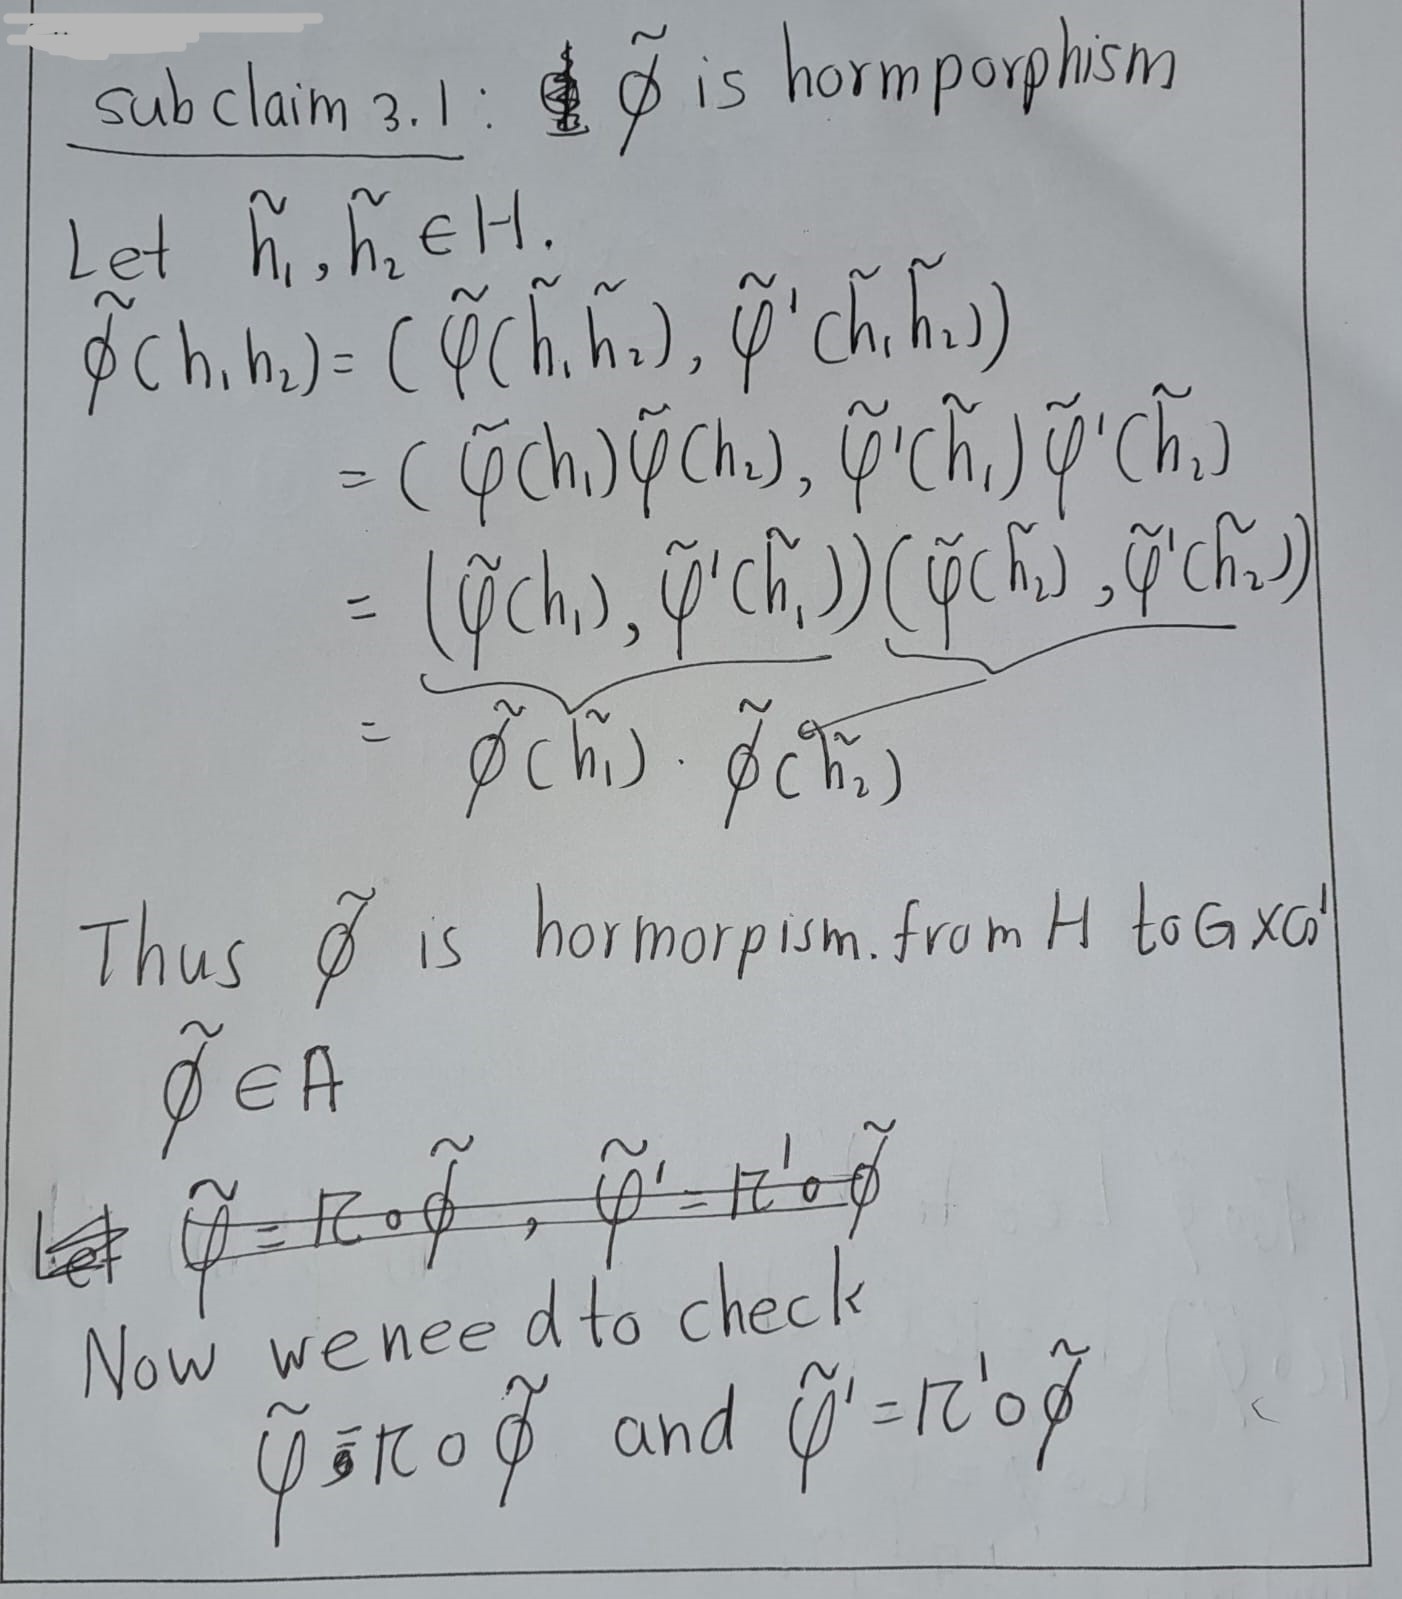 subclaim 3.1: φ̃ is hormporphism
Let h̃₁, h̃₂ ∈ H.
φ̃(h₁h₂) = (ψ̃(h̃₁h̃₂), ψ̃'(h̃₁h̃₂))
= (ψ̃(h₁)ψ̃(h₂), ψ̃'(h̃₁)ψ̃'(h̃₂)
= (ψ̃(h₁), ψ̃'(h̃₁))(ψ̃(h̃₂), ψ̃'(h̃₂))
= φ̃(h̃₁) · φ̃(h̃₂)
Thus φ̃ is hormorpism. from H to G×G'
φ̃ ∈ A
Let ψ̃ = π∘φ̃, ψ̃' = π'∘φ̃
Now we need to check
ψ̃ = π∘φ̃ and ψ̃' = π'∘φ̃